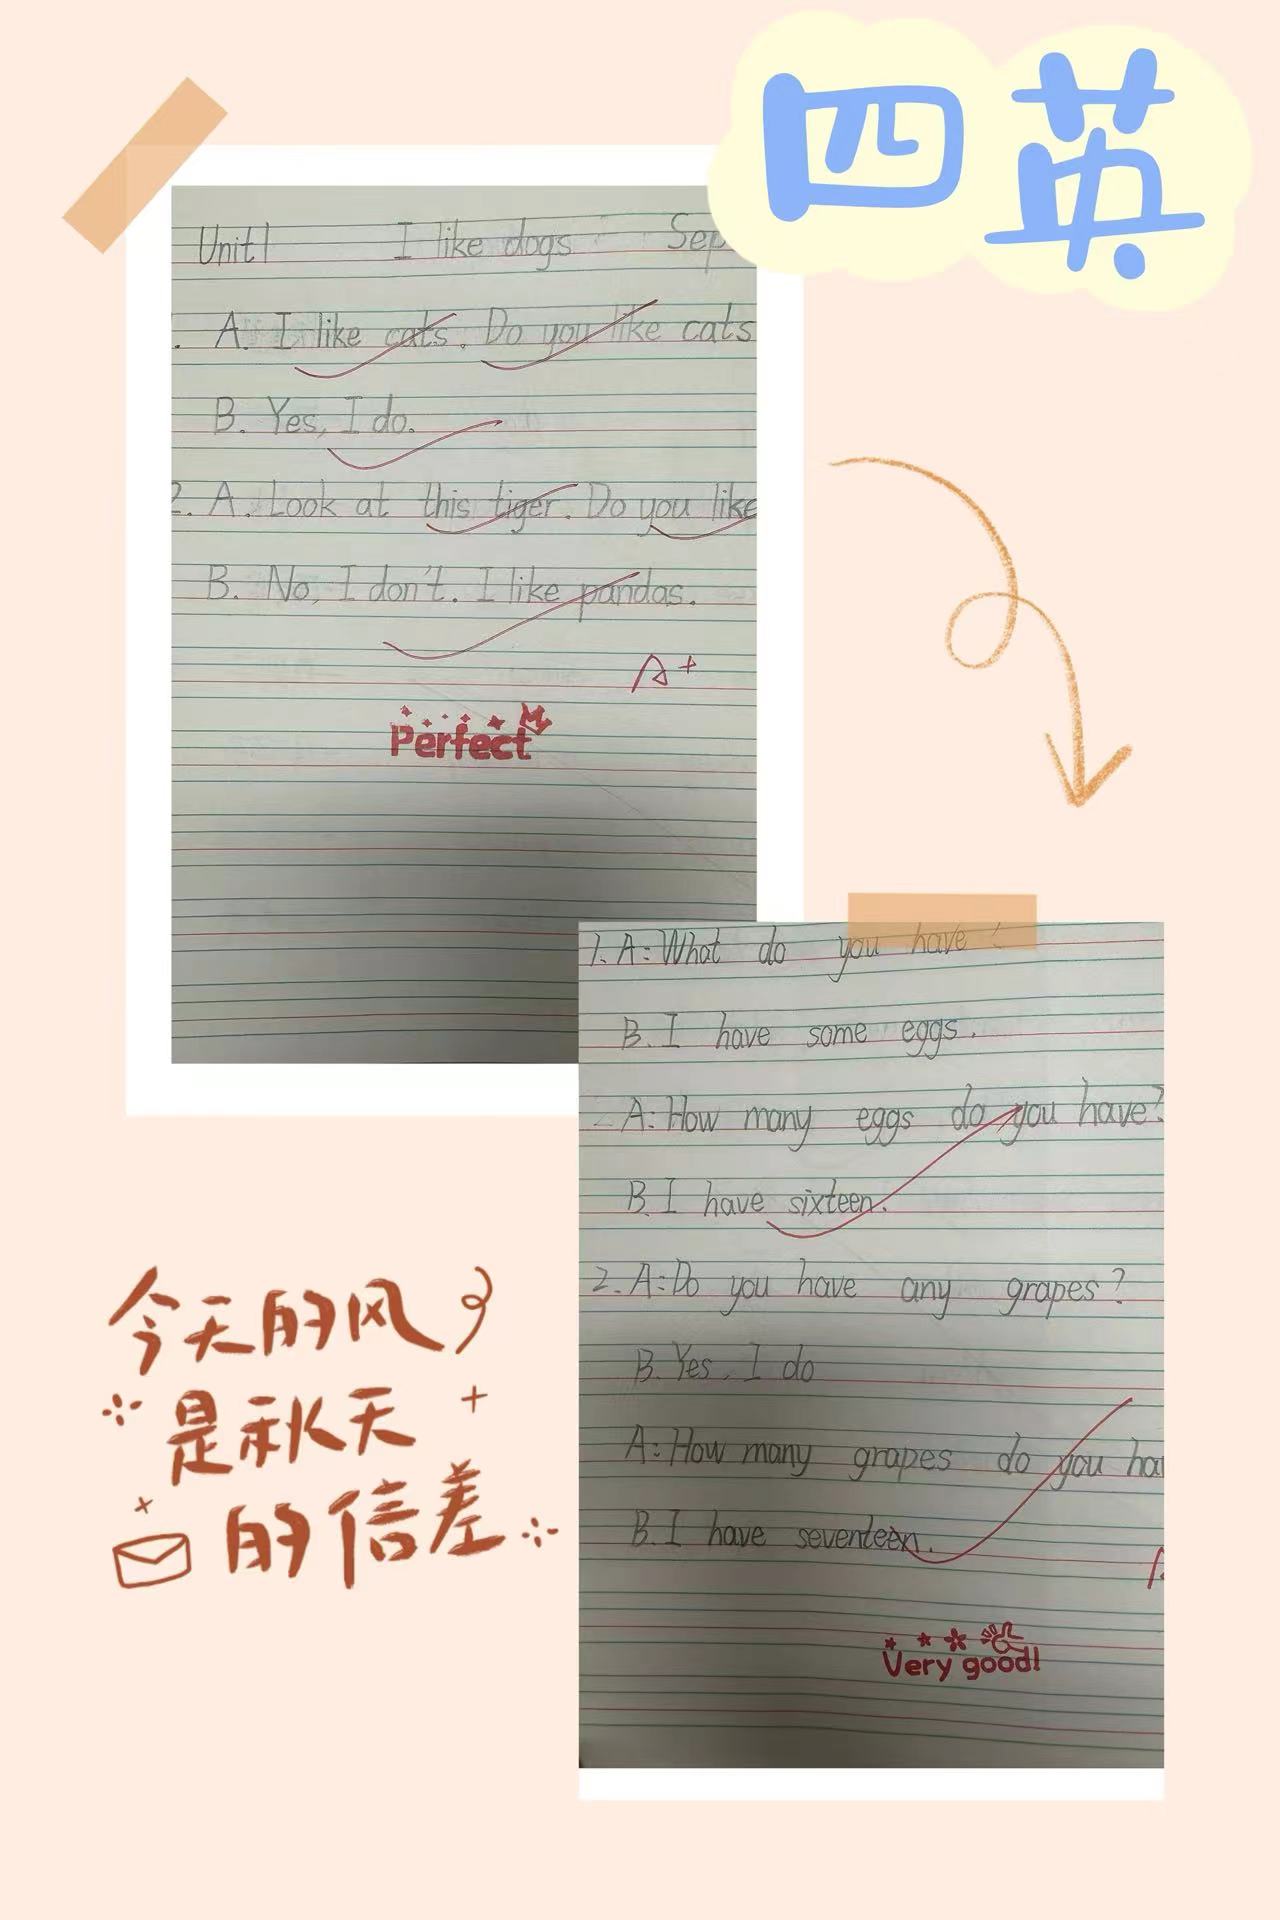 四英
Unit1 I like dogs Sep
. A. I like cats. Do you like cats
B. Yes, I do.
2. A. Look at this tiger. Do you like
B. No, I don't. I like pandas.
A+
Perfect
1. A: What do you have
B. I have some eggs.
A: How many eggs do you have?
B. I have sixteen.
2. A: Do you have any grapes?
B. Yes, I do
A: How many grapes do you ha
B. I have seventeen.
Very good!
今天的风
是秋天
的信差